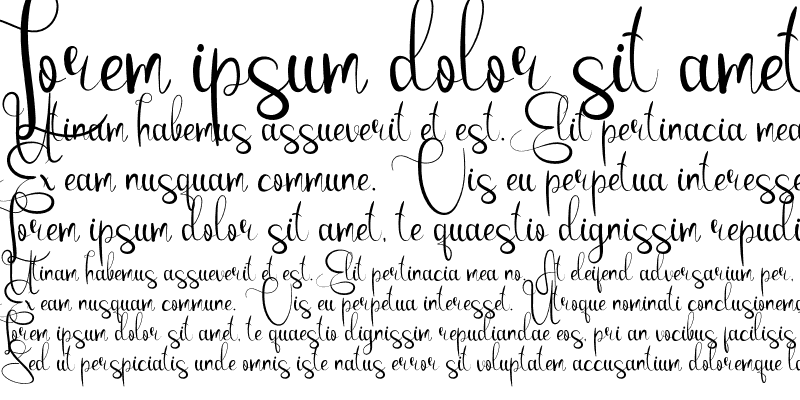 Lorem ipsum dolor sit amet
Utinam habemus assueverit et est. Elit pertinacia mea
Ex eam nusquam commune. Vis eu perpetua interesse
Lorem ipsum dolor sit amet, te quaestio dignissim repudi
Utinam habemus assueverit et est. Elit pertinacia mea no. At eleifend adversarium per,
Ex eam nusquam commune. Vis eu perpetua interesset. Utroque nominati conclusionem
Lorem ipsum dolor sit amet, te quaestio dignissim repudiandae eos, pri an vocibus facilisis
Sed ut perspiciatis unde omnis iste natus error sit voluptatem accusantium doloremque la